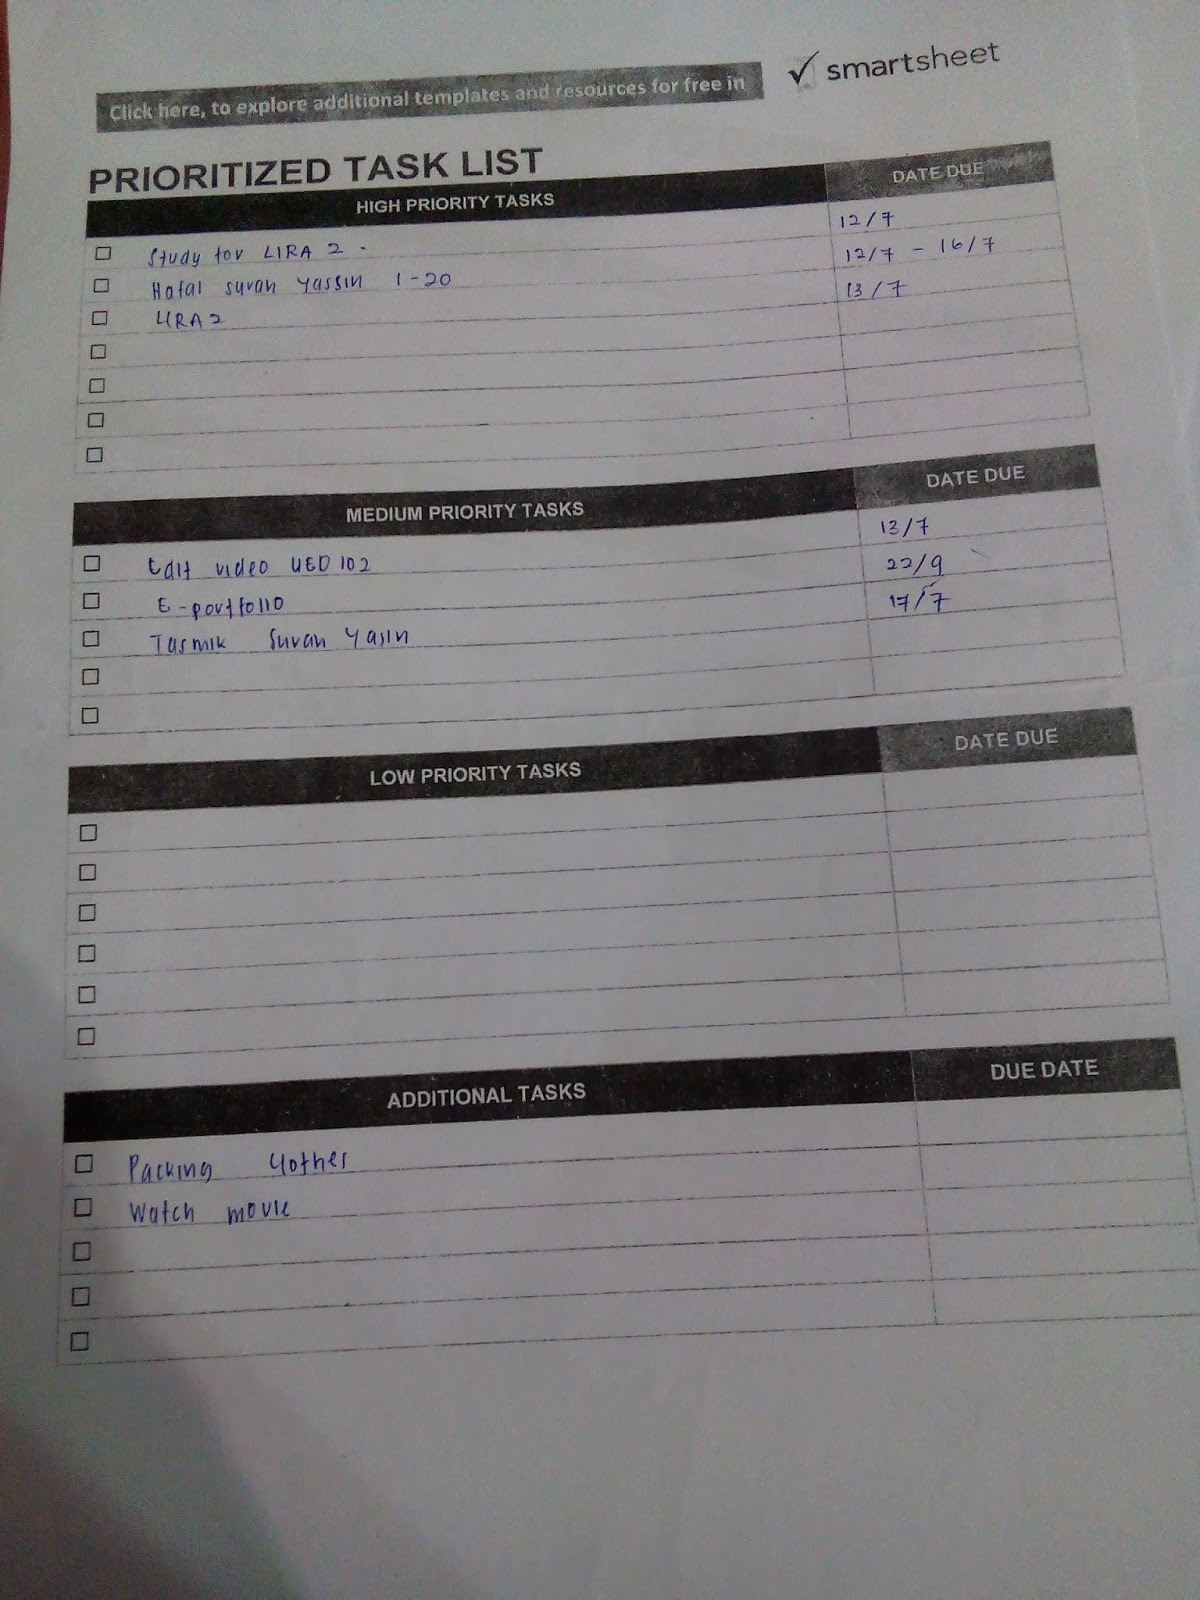 Click here, to explore additional templates and resources for free in
smartsheet
PRIORITIZED TASK LIST
HIGH PRIORITY TASKS DATE DUE
Study for LIRA 2 - 12/7
Hafal suran Yassin 1-20 12/7 - 16/7
LIRA 2 13/7
MEDIUM PRIORITY TASKS DATE DUE
Edit video UED 102 13/7
E-portfolio 22/9
Tasmik Suran Yasin 17/7
LOW PRIORITY TASKS DATE DUE
ADDITIONAL TASKS DUE DATE
Packing clothes
Watch movie